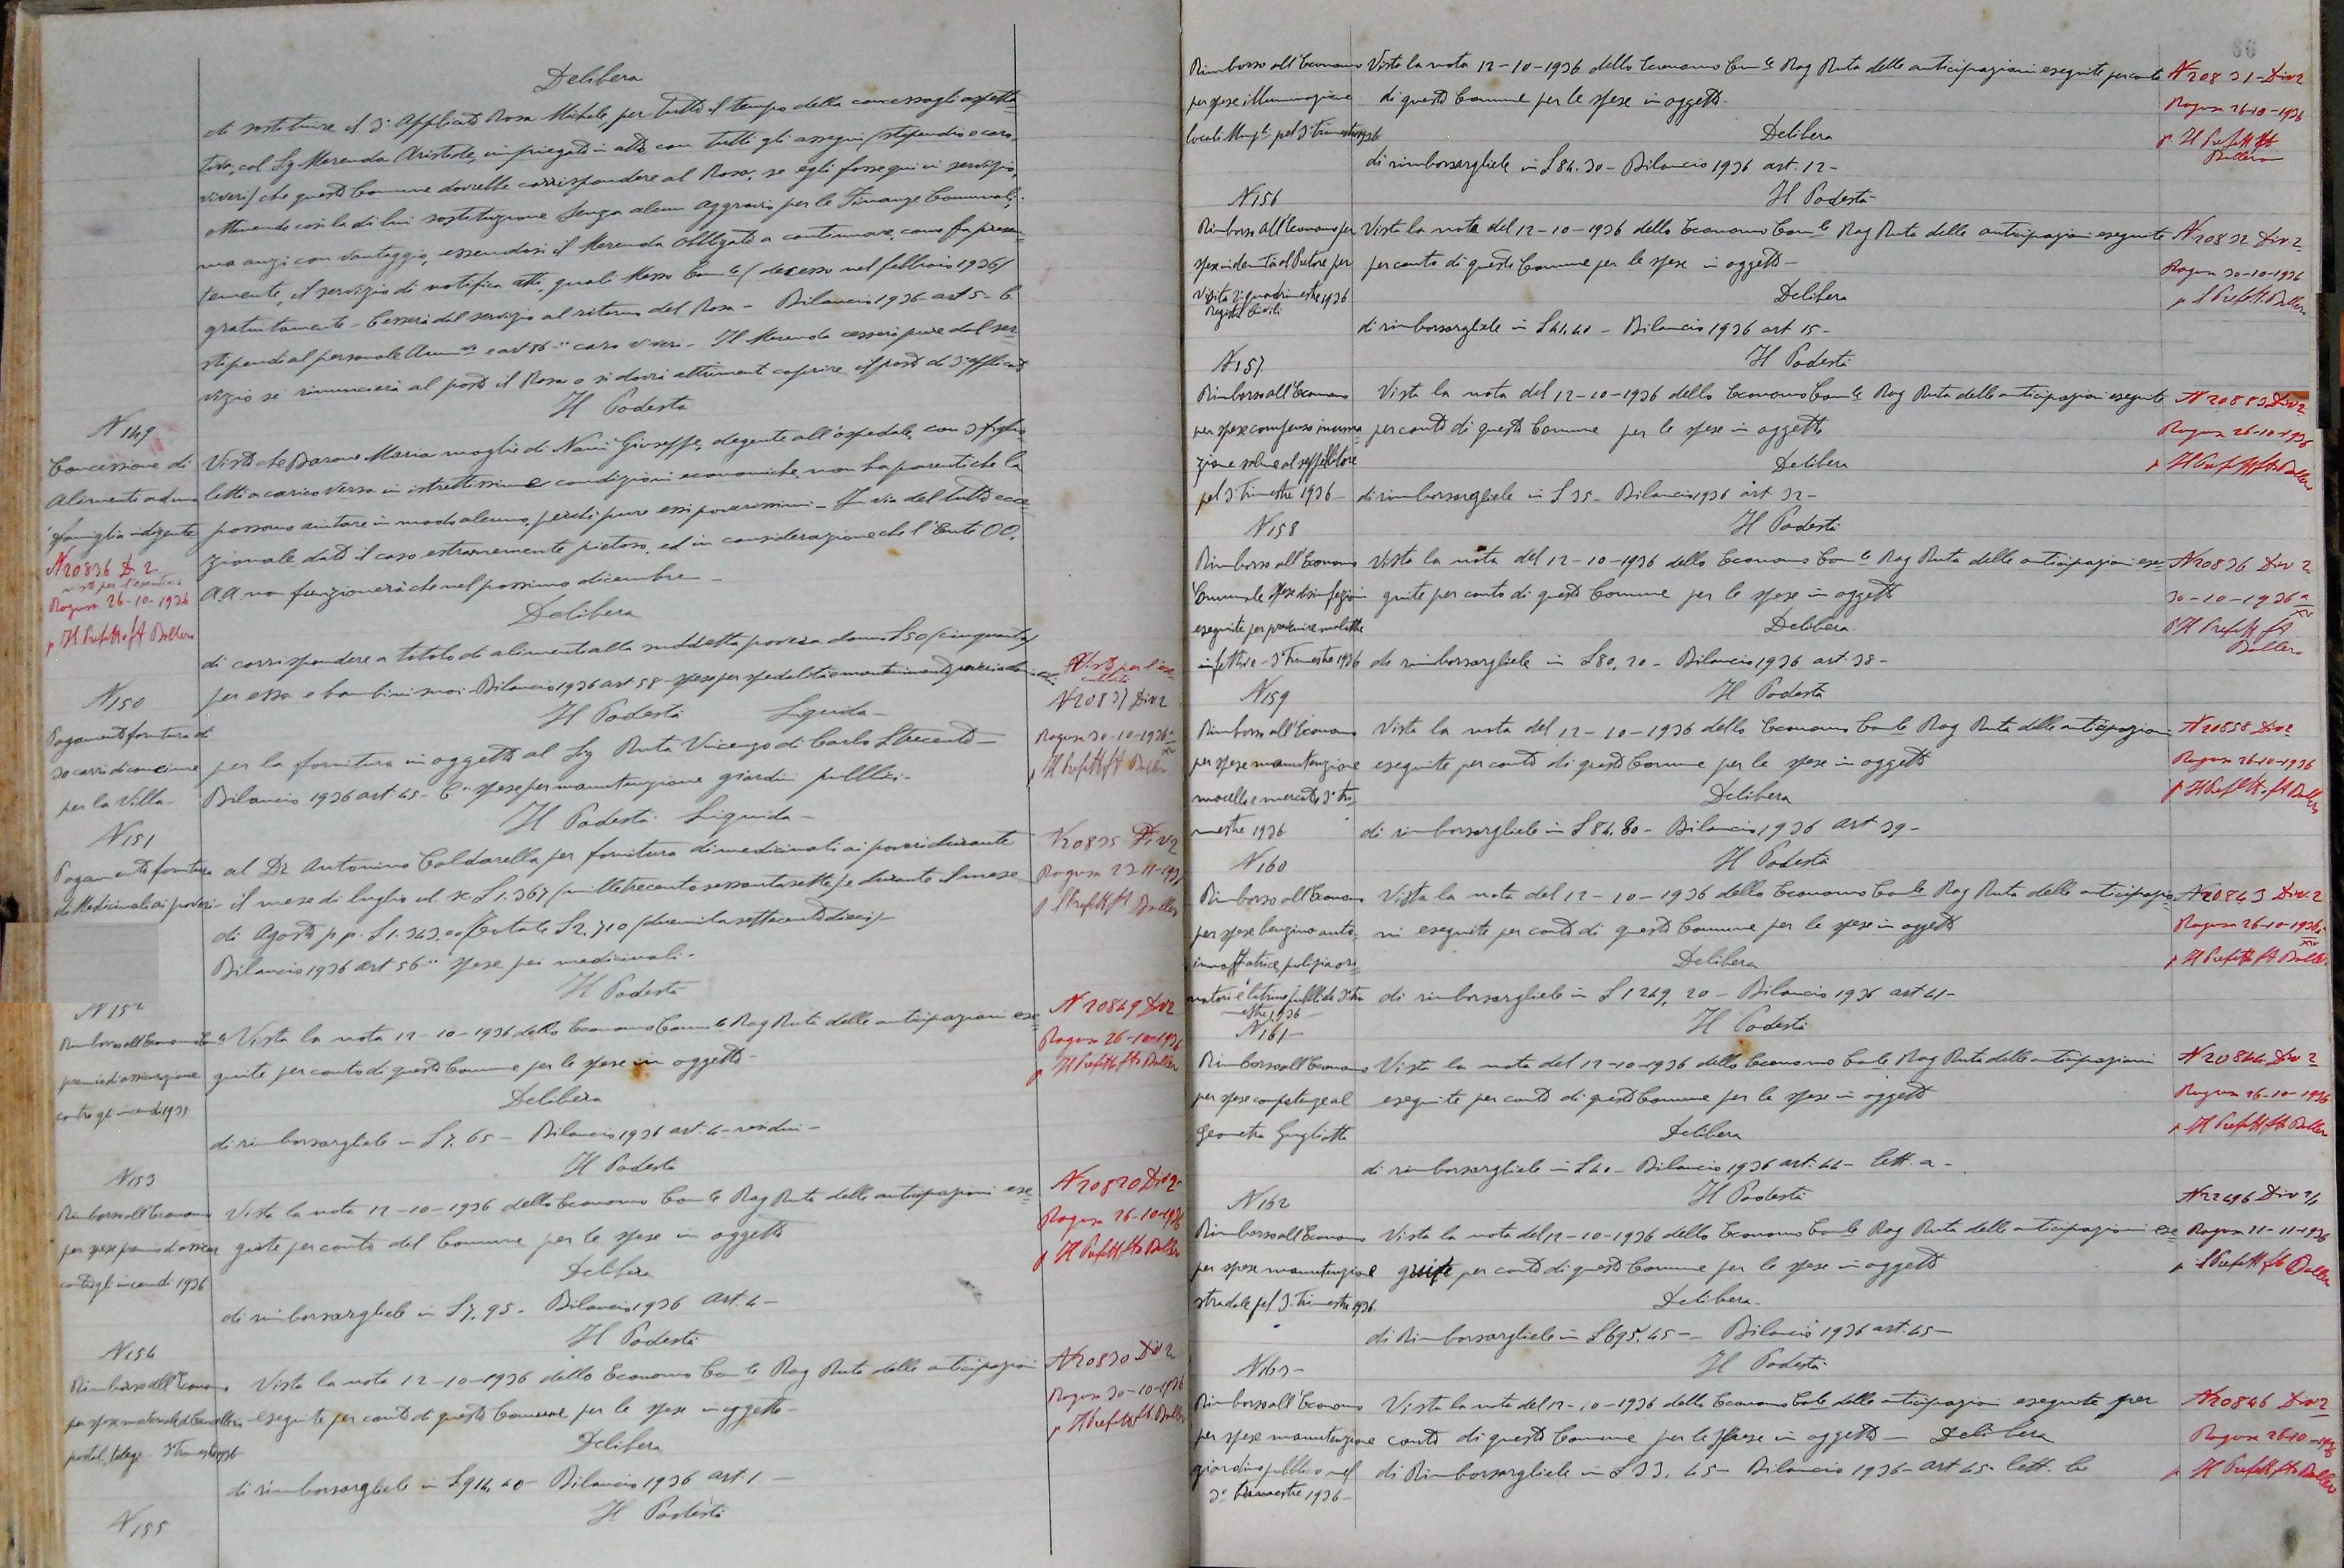 Delibera
di sostituire il 3° Applicato Rosa Michele, per tutto il tempo della concessagli aspetta-
tiva, col Sig Merenda Aristide, impiegato in atto con tutti gli assegni (stipendio e caro
viveri) che questo Comune dovrebbe corrispondere al Rosa, se egli fosse qui in servizio,
ottenendo così la di lui sostituzione senza alcun aggravio per le Finanze Comunali,
ma anzi con vantaggio, essendosi il Merenda obbligato a continuare, come fa presen-
temente, il servizio di notifica atti, quale Messo Com.le (decesso nel febbraio 1936)
gratuitamente - Cesserà dal servizio al ritorno del Rosa - Bilancio 1936 art 5 - C.
stipendi al personale Amm.vo e art 86 " caro viveri - Il Merenda cesserà pure dal ser-
vizio se rinuncierà al posto il Rosa o si dovrà altrimenti coprire il posto di 3° applicato
Il Podestà
N 149
Concessione di
alimenti ad una
famiglia indigente
N 20836 D. 2.
visto per l'esecut.
Ragusa 26-10-1936
p Il Prefetto ft Ballero
Visto che Barone Maria moglie di Nani Giuseppe, degente all'ospedale, con 3 figli
letti a carico versa in istrettissime condizioni economiche, non ha parenti che la
possono aiutare in modo alcuno, perchè pure essi poverissimi - In via del tutto ecce-
zionale dato il caso estremamente pietoso, ed in considerazione che l'Ente OO.
A.A. non funzionerà che nel prossimo dicembre -
Delibera
di corrispondere a titolo di alimenti alla suddetta povera donna £ 50 (cinquanta)
per essa e bambini suoi - Bilancio 1936 art 58 - spese per spedalità e mantenimento
Il Podestà
N 150
Pagamento fornitura di
30 carri di concime
per la Villa -
Liquida -
per la fornitura in oggetto al Sig Ruta Vincenzo di Carlo £ trecento -
Bilancio 1936 art 45 - C" spese per manutenzione giardini pubblici -
Il Podestà
Visto per l'ese-
cutività
N 20837 Div 2
Ragusa 30-10-1936 a XV
p Il Prefetto ft Ballero
N 151
Pagamento fornitura
di Medicinali ai poveri
Liquida -
al Dr Antonino Caldarella per fornitura di medicinali ai poveri durante
il mese di luglio u.s. £ 1.367 (milletrecentosessantasette) e durante il mese
di Agosto p.p. £ 1.343,00 (Totale £ 2.710 (duemilasettecentodieci) -
Bilancio 1936 art 56 " spese pei medicinali -
Il Podestà
N 20835 Div 2
Ragusa 23-11-1936
p Il Prefetto ft Ballero
N 152
Rimborso all'Economo Com.le
premio di assicurazione
contro gl'incendi 1935
Vista la nota 12-10-1936 dello Economo Com.le Rag Ruta delle anticipazioni ese-
guite per conto di questo Comune per le spese in oggetto -
Delibera
di rimborsargliele in £ 7.65 - Bilancio 1936 art. 4 - residui -
Il Podestà
N 20849 Div 2
Ragusa 26-10-1936
p Il Prefetto fto Ballero
N 153
Rimborso all'Economo
per spese premio di assicur
contro gl'incendi 1936
Vista la nota 12-10-1936 dello Economo Com.le Rag Ruta delle anticipazioni ese-
guite per conto del Comune per le spese in oggetto
Delibera
di rimborsargliele in £ 7.95 - Bilancio 1936 art. 4 -
Il Podestà
N 20820 Div 2
Ragusa 26-10-1936
p Il Prefetto fto Ballero
N 154
Rimborso all'Economo
per spese materiale di Cancelleria
postal, telegr. 3° Trimestre 1936
Vista la nota 12-10-1936 dello Economo Com.le Rag Ruta delle anticipazioni
eseguite per conto di questo Comune per le spese in oggetto -
Delibera
di rimborsargliele in £ 914,40 - Bilancio 1936 art. 1 -
Il Podestà
N 20830 Div 2
Ragusa 30-10-1936
p Il Prefetto ft Ballero
N 155
66
Rimborso all'Economo
per spese illuminazione
locali Mun.li pel 3° Trimestre 1936
Vista la nota 12-10-1936 dello Economo Com.le Rag Ruta delle anticipazioni eseguite per conto
di questo Comune per le spese in oggetto -
Delibera
di rimborsargliele in £ 84.30 - Bilancio 1936 art. 12 -
Il Podestà
N 20831 - Div 2
Ragusa 26-10-1936
p. Il Prefetto ft
Ballero
N 156
Rimborso all'Economo per
spese indennità al Pretore per
visita 2° quadrimestre 1936
Registri Civili
Vista la nota del 12-10-1936 dello Economo Com.le Rag Ruta delle anticipazioni eseguite
per conto di questo Comune per le spese in oggetto -
Delibera
di rimborsargliele in £ 41.40 - Bilancio 1936 art 15 -
Il Podestà
N 20832 Div 2
Ragusa 30-10-1936
p Il Prefetto Ballero
N 157
Rimborso all'Economo
per spese compenso inuma-
zione salme al seppellitore
pel 3° Trimestre 1936 -
Vista la nota del 12-10-1936 dello Economo Com.le Rag Ruta delle anticipazioni eseguite
per conto di questo Comune per le spese in oggetto
Delibera
di rimborsargliele in £ 35 - Bilancio 1936 art 32 -
Il Podestà
N 20883 Div 2
Ragusa 26-10-1936
p Il Prefetto fto Ballero
N 158
Rimborso all'Economo
Comunale spese disinfezioni
eseguite per prevenire malattie
infettive 3° Trimestre 1936
Vista la nota del 12-10-1936 dello Economo Com.le Rag Ruta delle anticipazioni ese-
guite per conto di questo Comune per le spese in oggetto
Delibera.
di rimborsargliele in £ 80,20 - Bilancio 1936 art. 38 -
Il Podestà
N 20836 Div 2
30-10-1936 a XV
p Il Prefetto ft
Ballero
N 159
Rimborso all'Economo
per spese manutenzione
macello e mercato 3° tri-
mestre 1936
Vista la nota del 12-10-1936 dello Economo Com.le Rag Ruta delle anticipazioni
eseguite per conto di questo Comune per le spese in oggetto
Delibera
di rimborsargliele in £ 84,80 - Bilancio 1936 art 39 -
Il Podestà
N 20858 Div 2
Ragusa 26-10-1936
p Il Prefetto ft Ballero
N 160
Rimborso all'Economo
per spese benzina auto-
innaffiatrice, pulizia ori-
natoi e latrine pubbliche 3° tri-
mestre 1936
Vista la nota del 12-10-1936 dello Economo Com.le Rag Ruta delle anticipazio-
ni eseguite per conto di questo Comune per le spese in oggetto
Delibera
di rimborsargliele in £ 1249,20 - Bilancio 1936 art 41 -
Il Podestà
N 20843 Div. 2
Ragusa 26-10-1936 a XV
p Il Prefetto ft Ballero
N 161 -
Rimborso all'Economo
per spese competenze al
Geometra Gugliotta
Vista la nota del 12-10-1936 dello Economo Com.le Rag Ruta delle anticipazioni
eseguite per conto di questo Comune per le spese in oggetto
Delibera
di rimborsargliele in £ 40 - Bilancio 1936 art. 44 - lett. a -
Il Podestà
N 20844 Div 2
Ragusa 26-10-1936
p Il Prefetto fto Ballero
N 162
Rimborso all'Economo
per spese manutenzione
stradale pel 3° Trimestre 1936.
Vista la nota del 12-10-1936 dello Economo Com.le Rag Ruta delle anticipazioni ese-
guite per conto di questo Comune per le spese in oggetto
Delibera.
di Rimborsargliele in £ 695,45 - Bilancio 1936 art. 45 -
Il Podestà
N 22496 Div 2/1
Ragusa 11-11-1936
p Il Prefetto fto Ballero
N 163 -
Rimborso all'Economo
per spese manutenzione
giardino pubblico nel
3° Trimestre 1936 -
Vista la nota del 12-10-1936 dello Economo Com.le delle anticipazioni eseguite per
conto di questo Comune per le spese in oggetto - Delibera
di Rimborsargliele in £ 33,45 - Bilancio 1936 - art 45 - lett. b
N 20846 Div 2
Ragusa 26-10-1936
p Il Prefetto fto Ballero